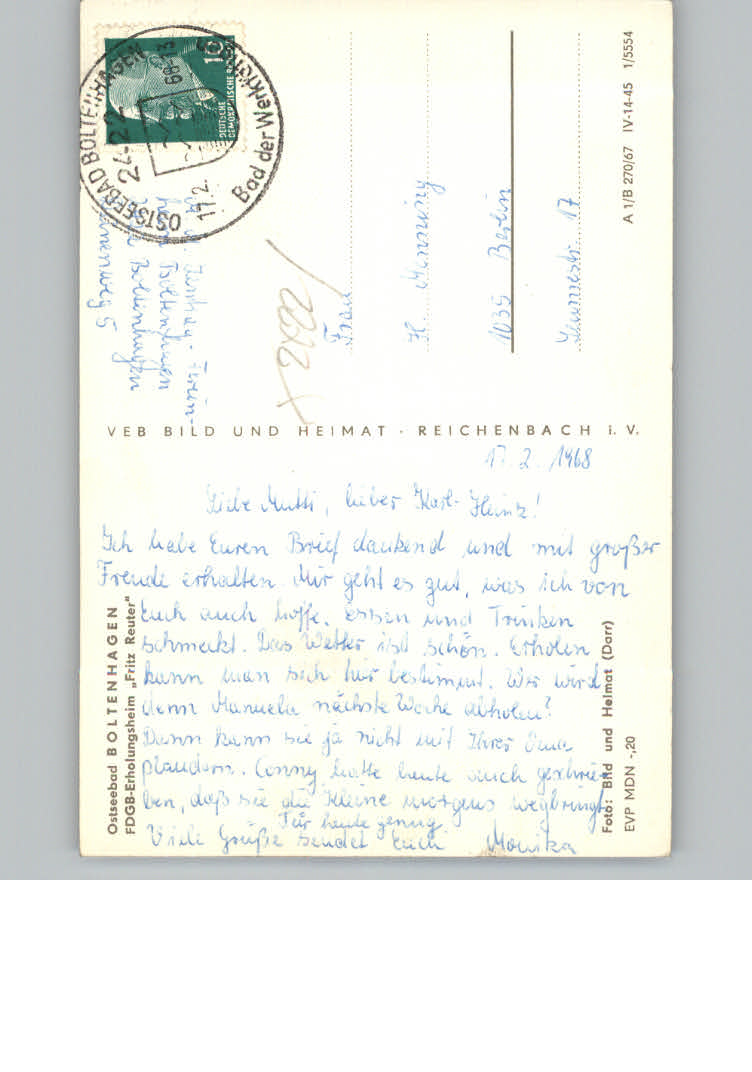 OSTSEEBAD BOLTENHAGEN
24-22
17.2.
68-3
Bad der Werktätigen
DEUTSCHE
DEMOKRATISCHE
10
Boltenhagen
Boltenhagen
5
Frau
H. Menning
1035 Berlin
17
A 1/B 270/67 IV-14-45 1/5554
VEB BILD UND HEIMAT · REICHENBACH i. V.
17. 2. 1968
Liebe Mutti, lieber Karl-Heinz!
Ich habe Euren Brief dankend und mit großer
Freude erhalten. Mir geht es gut, was ich von
Euch auch hoffe. Essen und Trinken
schmeckt. Das Wetter ist schön. Erholen
kann man sich hier bestimmt. Wer wird
denn Manuela nächste Woche abholen?
Dann kann sie ja nicht mit Ihrer Oma
plaudern. Conny hatte heute auch geschrie-
ben, daß sie die Kleine morgens wegbringt.
Für heute genug.
Viele Grüße sendet Euch Monika
Ostseebad BOLTENHAGEN
FDGB-Erholungsheim „Fritz Reuter"
Foto: Bild und Heimat (Darr)
EVP MDN -,20